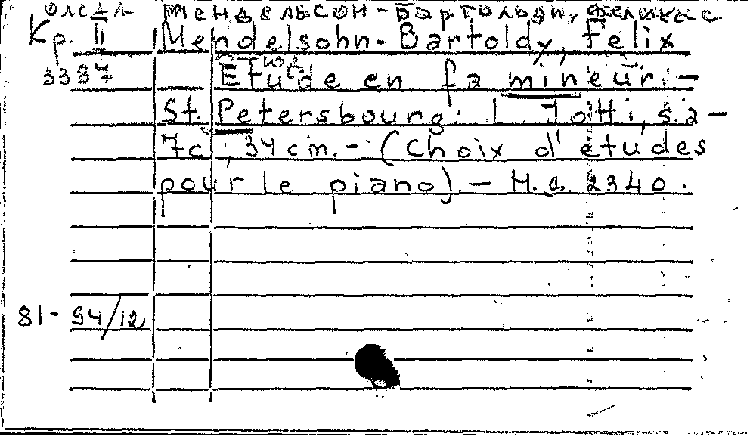 Мендельсон-Бартольди, Феликс
Кр. II Mendelsohn-Bartoldy, Felix
3337 Etude en fa mineur. –
St. Petersbourg: I. Jotti, s.a –
7с., 34 cm. – (Choix d'études
pour le piano) – Н.д. 2340.
81-94/12